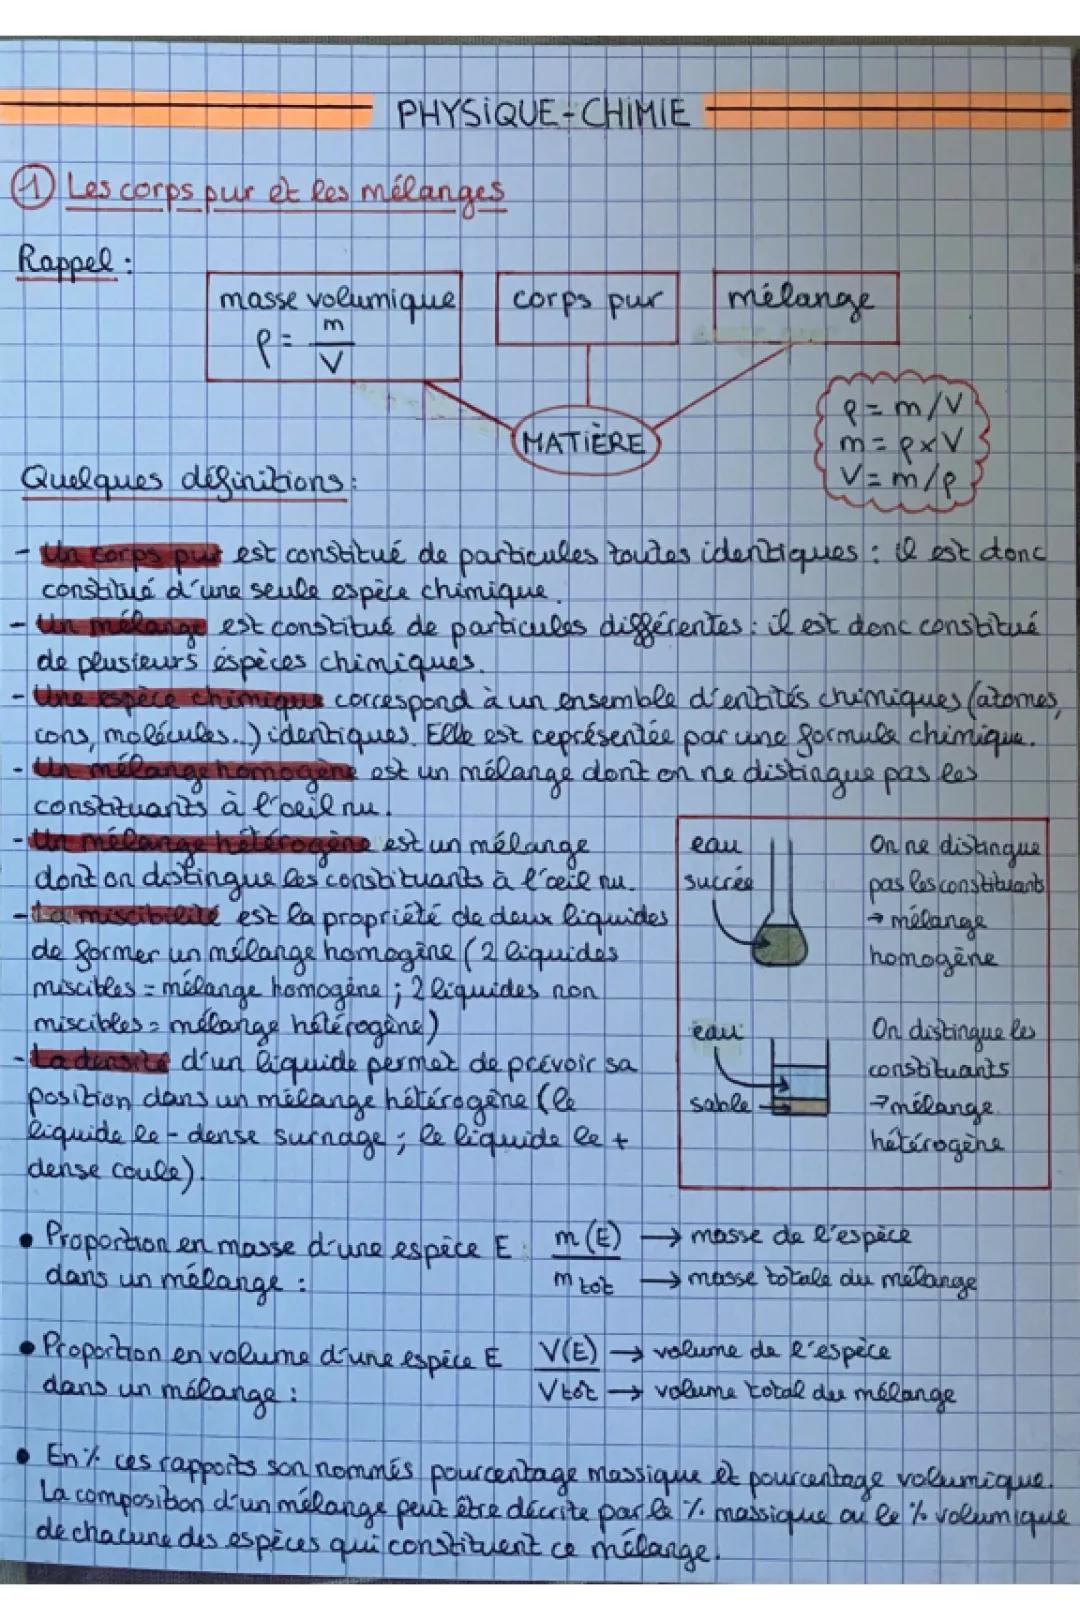 PHYSIQUE-CHIMIE
1 Les corps pur et les mélanges
Rappel :
masse volumique
ρ = m/V
corps pur
mélange
MATIÈRE
ρ = m/V
m = ρ x V
V = m/ρ
Quelques définitions :
- Un corps pur est constitué de particules toutes identiques : il est donc
constitué d'une seule espèce chimique.
- Un mélange est constitué de particules différentes : il est donc constitué
de plusieurs espèces chimiques.
- Une espèce chimique correspond à un ensemble d'entités chimiques (atomes,
ions, molécules...) identiques. Elle est représentée par une formule chimique.
- Un mélange homogène est un mélange dont on ne distingue pas les
constituants à l'oeil nu.
- Un mélange hétérogène est un mélange
dont on distingue les constituants à l'oeil nu.
- La miscibilité est la propriété de deux liquides
de former un mélange homogène (2 liquides
miscibles = mélange homogène ; 2 liquides non
miscibles = mélange hétérogène)
- La densité d'un liquide permet de prévoir sa
position dans un mélange hétérogène (le
liquide le - dense surnage ; le liquide le +
dense coule).
eau
sucrée
On ne distingue
pas les constituants
→ mélange
homogène
eau
sable
On distingue les
constituants
→ mélange
hétérogène
• Proportion en masse d'une espèce E
dans un mélange :
m(E) → masse de l'espèce
m tot → masse totale du mélange
• Proportion en volume d'une espèce E
dans un mélange :
V(E) → volume de l'espèce
V tot → volume total du mélange
• En % ces rapports son nommés pourcentage massique et pourcentage volumique.
La composition d'un mélange peut être décrite par le % massique ou le % volumique
de chacune des espèces qui constituent ce mélange.